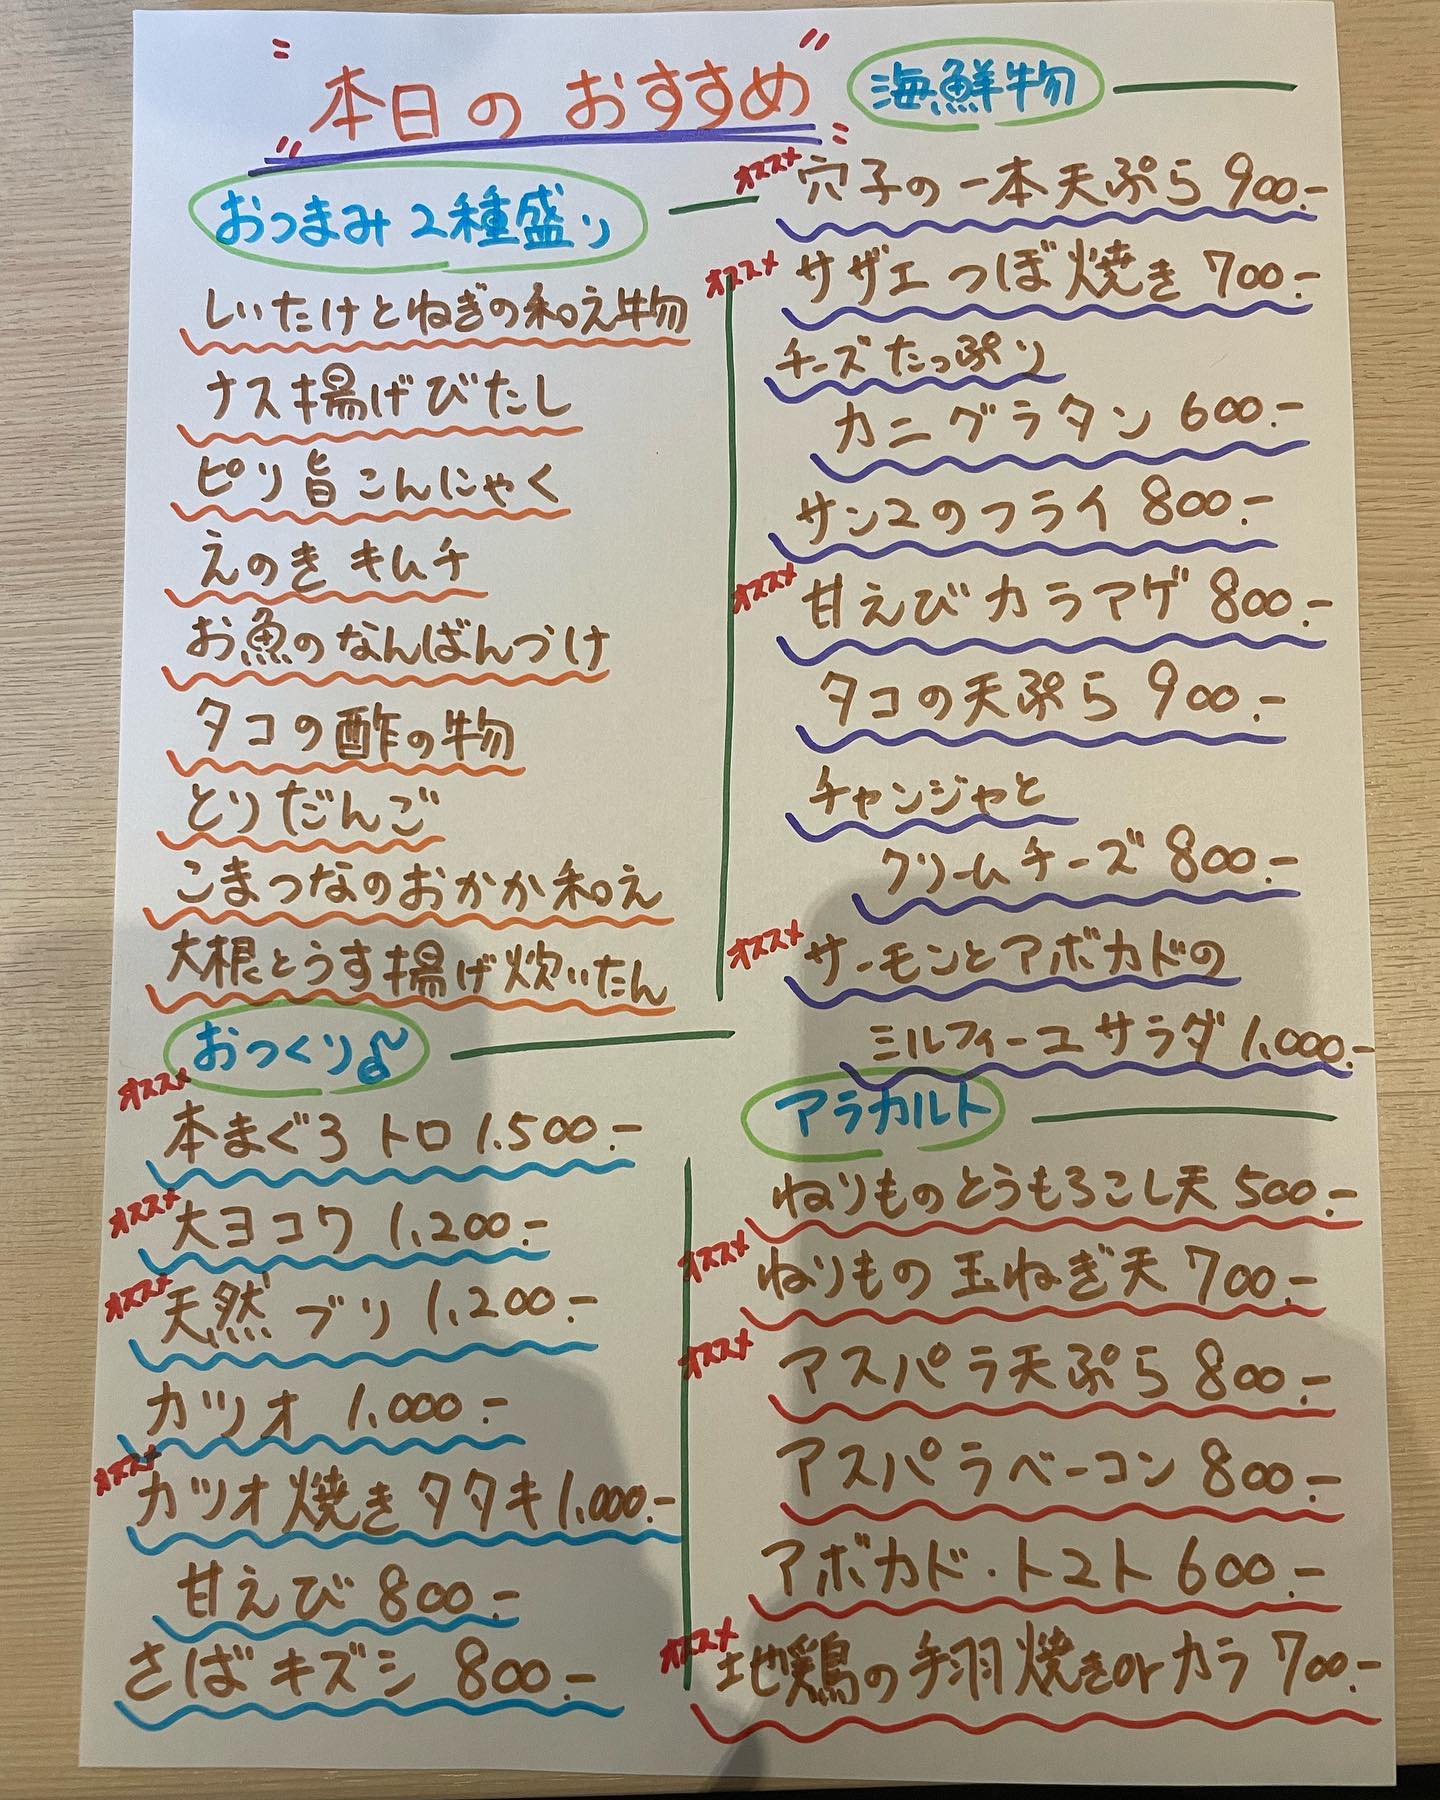 本日のおすすめ
おつまみ2種盛り
しいたけとねぎの和え物
ナス揚げびたし
ピリ旨こんにゃく
えのきキムチ
お魚のなんばんづけ
タコの酢の物
とりだんご
こまつなのおかか和え
大根とうす揚げ炊いたん
おつくり♪
オススメ 本まぐろトロ 1,500.-
オススメ 大ヨコワ 1,200.-
オススメ 天然ブリ 1,200.-
カツオ 1,000.-
オススメ カツオ焼きタタキ 1,000.-
甘えび 800.-
さばキズシ 800.-
海鮮物
オススメ 穴子の一本天ぷら 900.-
オススメ サザエつぼ焼き 700.-
チーズたっぷり
カニグラタン 600.-
サンマのフライ 800.-
オススメ 甘えびカラアゲ 800.-
タコの天ぷら 900.-
チャンジャと
クリームチーズ 800.-
オススメ サーモンとアボカドの
ミルフィーユサラダ 1,000.-
アラカルト
ねりものとうもろこし天 500.-
オススメ ねりもの玉ねぎ天 700.-
オススメ アスパラ天ぷら 800.-
アスパラベーコン 800.-
アボカド・トマト 600.-
オススメ 地鶏の手羽焼きorカラ 700.-